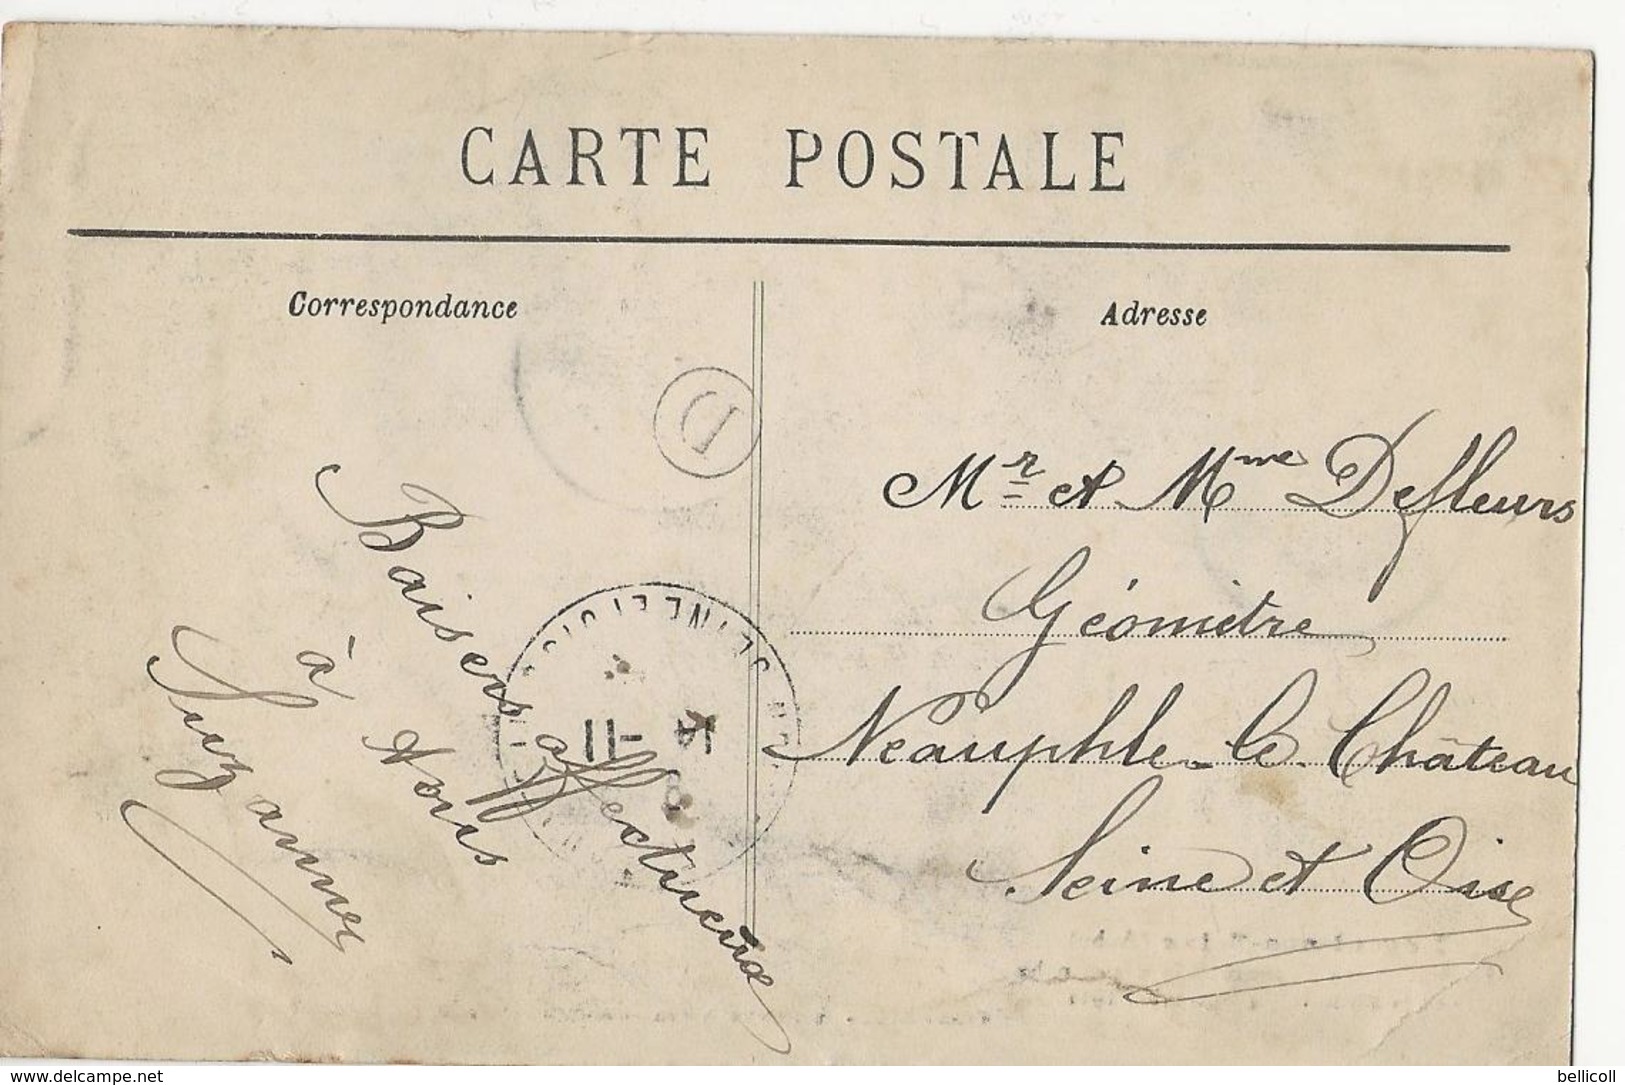 CARTE POSTALE
Correspondance
Adresse
D
Baisers affectueux
à tous
Suzanne
SEINE ET OISE
11
Mr et Mme Defleurs
Géomètre
Neauphle-le-Château
Seine et Oise
www.delcampe.net
bellicoll